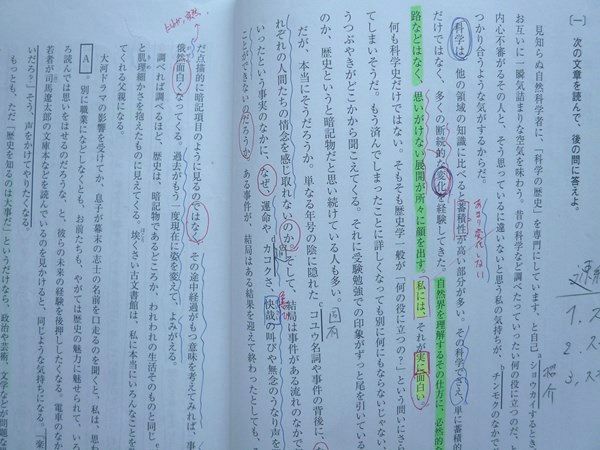 〔一〕 次の文章を読んで、後の問に答えよ。
見知らぬ自然科学者に、「科学の歴史」を専門にしています、と自己ショウカイするとき、
お互いに一瞬気詰まりな空気が味わう。昔の科学など調べたっていったい何の役に立つのだ、と
内心不審がるその人と、そう思っているに違いないと思う私の気持ちが、チンモクのなかで
つかり合うような気がするからだ。
科学は、他の領域の知識に比べると蓄積性が高い部分が多い。その科学でさえ、単に蓄積的
だけではなく、多くの断続的な変化を経験してきた
自然界を理解するその仕方に、必然的な
路などはなく、思いがけない展開が所々に顔を出す。私には、それが実に面白い。
何も科学史だけではない。そもそも歴史学一般が「何の役に立つの?」という問いにさら
てしまいそうだ。もう済んでしまったことに詳しくなっても別に何にもならないじゃない、
うつぶやきがどこかから聞こえてくる。それに受験勉強での印象がずっと尾を引いている
のか、歴史というと暗記物だと思い続けている人も多い。
だが、本当にそうだろうか。単なる年号の陰に隠れた、コユウ名詞や事件の背後に、
れぞれの人間たちの情念を感じ取れないのか。そして、結局は事件がある流れのなかで
いったという事実のなかに、なぜ、運命やカコクさ、快哉の叫びや無念のうなり声を
ことができないのだろうか。ある事件が、結局はある結果を迎えて終わったとしても、
だ点描的に暗記項目のように見るのではなく、その途中経過がもつ意味を考えてみれば、事
俄然面白くなってくる。過去がもう一度現在に姿を変えて、よみがえる。
調べれば調べるほど、歴史は、暗記物であるどころか、われわれの生活そのものと同じ
と肌理細かさを抱えたものに見えてくる。埃くさい古文書館は、私に本当にいろんなことを
てくれる父親になる。
大河ドラマの影響を受けてか、息子が幕末の志士の名前を口走るのを聞くと、私は、思わ
A 。別に職業になどしなくとも、お前たちも、やがては歴史の魅力に魅せられて、いろ
ろ読んでは思いをはせるのだろうな、と、彼らの未来の経験を後押ししたくなる。電車のなか
若者が司馬遼太郎の文庫本などを読んでいるのを見かけると、同じような気持ちになる。「楽
いだろ」そう、声をかけてやりたくなる。
もっとも、ただ「歴史を知るのは大事だ」というだけなら、政治や芸術、文学などが問題な
あまり変化しない
固有
紹介
1. ス
2. ス
3. ス